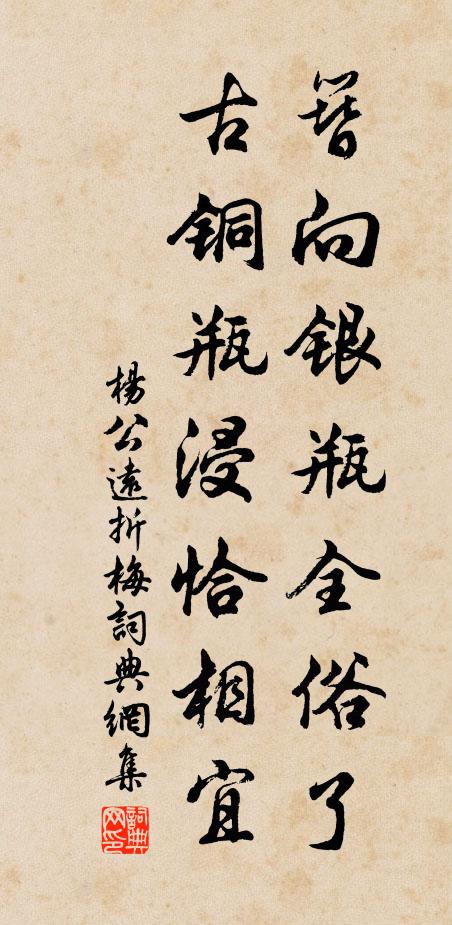 簪向銀瓶全俗了
古銅瓶浸恰相宜
楊公遠折梅詞典網集
詞典网印